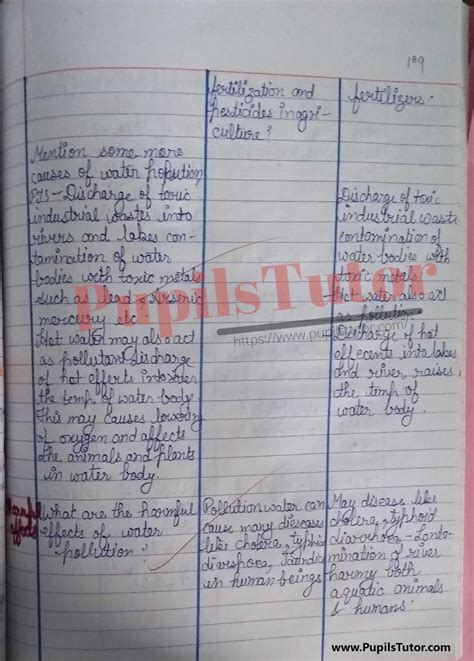 109
fertilization and
pesticides in agri-
culture?
fertilizers.
Mention some more
causes of water pollution
PTS- Discharge of toxic
industrial wastes into
rivers and lakes con-
tamination of water
bodies with toxic metals
such as lead, Arsenic
mercury etc
Hot water may also act
as pollutant discharge
of hot efferts into
the temp. of water body.
This may causes lowering
of oxygen and affects
the animals and plants
in water body.
Discharge of toxic
industrial waste
contamination of
water bodies with
toxic metals
Hot water also act
as pollution
Discharge of hot
effecents into lakes
and river raises
the temp of
water body.
PupilsTutor
https://www.pupilstutor.com/
Harmful
effects
What are the harmful
effects of water
pollution?
Pollution water can
cause many diseases
like cholera, typhiod
diarhoea, Jaundice
in human-beings
May disease like
cholera, typhoid
diarrhoea - Conta-
mination of river
harmy both
aquatic animals
& humans.
www.PupilsTutor.com